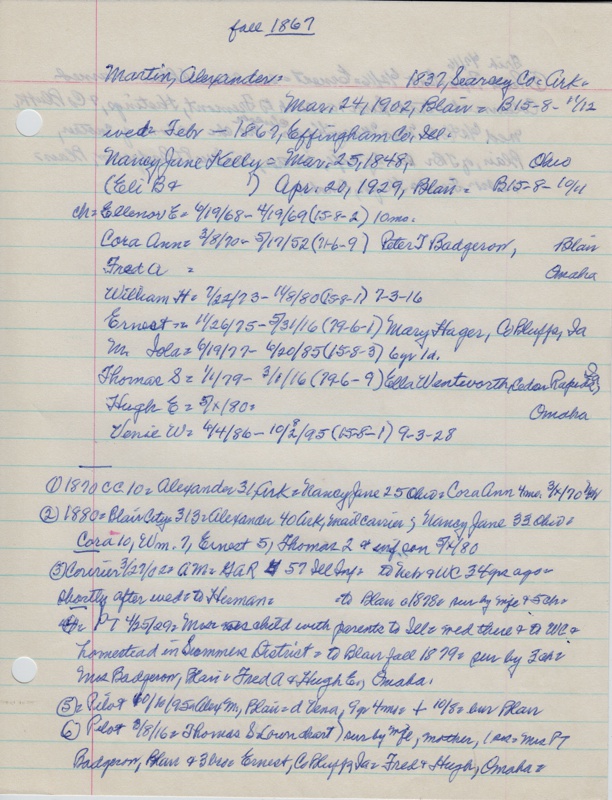 fall 1867
Martin, Alexander = 1837, Searcy Co = Ark =
Mar. 24, 1902, Blair = B15-8-11/12
wed = Febr - 1867, Effingham Co, Ill.
Nancy Jane Kelly = Mar. 25, 1848, Ohio
(Eli B & ) Apr. 20, 1929, Blair = B15-8-10/11
ch = Ellenor E = 4/19/68 - 4/19/69 (15-8-2) 10mo.
Cora Ann = 3/8/70 - 5/17/52 (71-6-9) Peter T Badgerow, Blair
Fred A = Omaha
William H = 7/22/73 - 11/8/80 (15-8-1) 7-3-16
Ernest = 11/26/75 - 5/31/16 (79-6-1) Mary Hager, Co Bluffs, Ia
M. Iola = 6/19/77 - 6/20/85 (15-8-3) 6yr 1d.
Thomas S = 1/1/79 - 3/1/16 (79-6-9) Ella Wentworth, Cedar Rapids, Ia
Hugh E = 5/x/80 = Omaha
Venie W = 6/4/86 - 10/2/95 (15-8-1) 9-3-28
① 1870 CC 10 = Alexander 31, Ark = Nancy Jane 25 Ohio = Cora Ann 4mo. 3/x/70
② 1880 = Blair City 313 = Alexander 40 Ark, mail carrier; Nancy Jane 33 Ohio =
Cora 10, Wm. 7, Ernest 5, Thomas 2 & inf son 5/x/80
③ Courier 3/27/02 = AM = GAR 57 Ill Inf = to Nebr & WC 34 yrs ago =
shortly after wed = to Herman = = to Blair c1878 = sur by wife & 5 ch =
④ = PT 4/25/29 = Mrs child with parents to Ill = wed there & to WC &
homestead in Summers District = to Blair fall 1879 = sur by 3 ch =
Mrs Badgerow, Blair = Fred A & Hugh E, Omaha.
⑤ = Pilot 10/10/95 = Alex M, Blair = d Vena, 9yr 4mo = + 10/8 = bur Blair
⑥ Pilot 3/8/16 = Thomas S sur by wife, mother, 1 sis = Mrs PT
Badgerow, Blair & 3 bros = Ernest, Co Bluffs Ia = Fred & Hugh, Omaha =